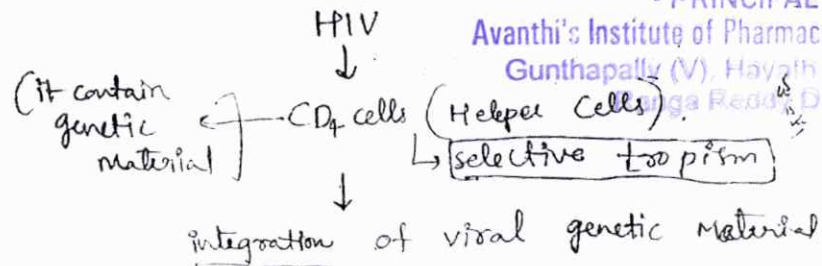 HIV
PRINCIPAL
Avanthi's Institute of Pharmac
Gunthapally (V), Hayath
Ranga Reddy D
(it contain
genetic
material
CD4 cells (Helper Cells).
selective tropism
integration of viral genetic material